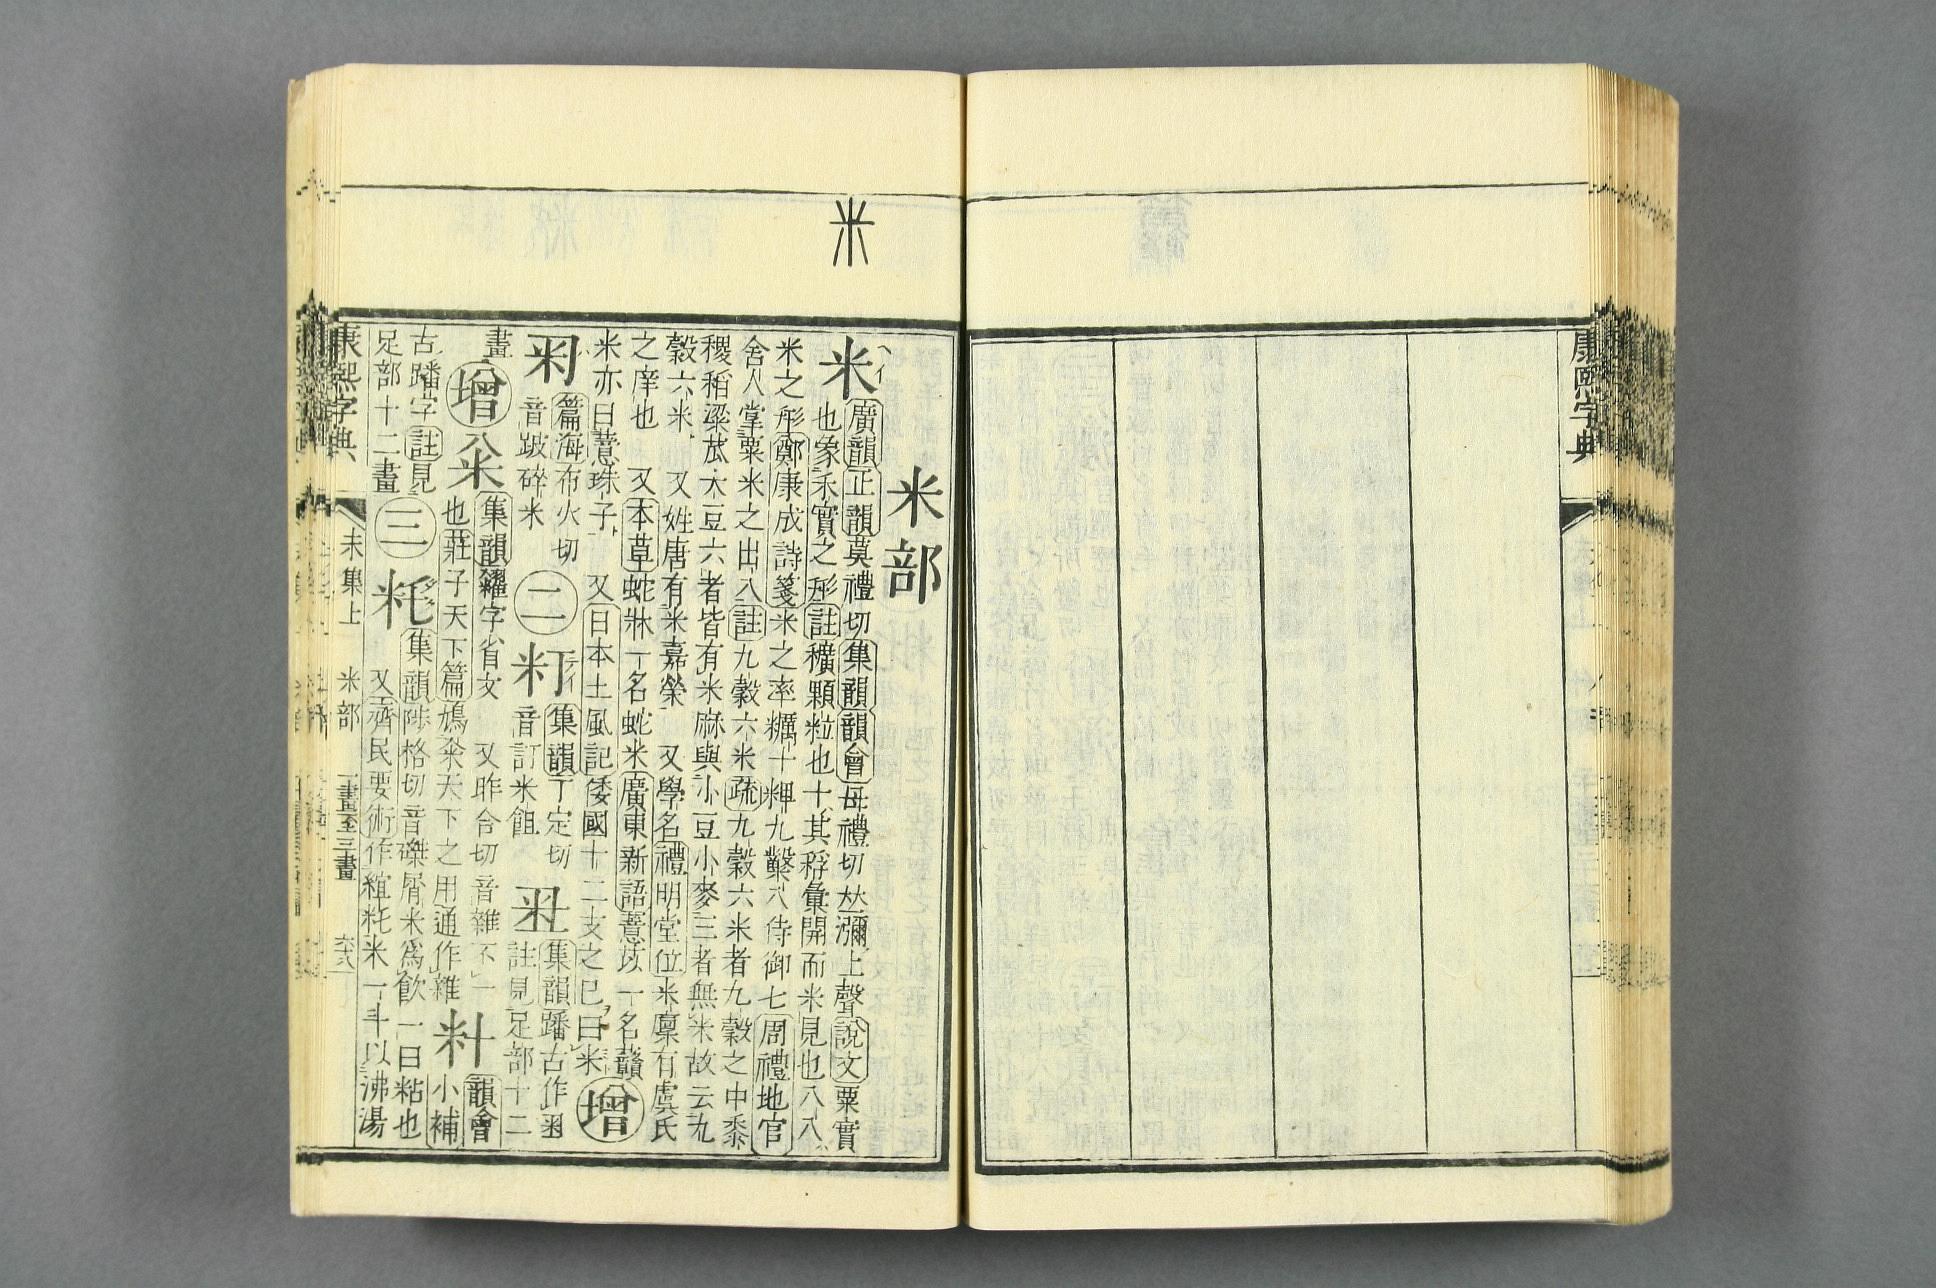 康熙字典
米
米部
米 ベイ
廣韻正韻莫禮切集韻韻會母禮切𠀤瀰上聲說文粟實
也象禾實之形註穬顆粒也十其稃彙開而米見也八八
米之形鄭康成詩箋米之率糲十粺九鑿八侍御七周禮地官
舍人掌粟米之出入註九穀六米疏九穀六米者九穀之中黍
稷稻粱苽大豆六者皆有米麻與小豆小麥三者無米故云九
穀六米 又姓唐有米嘉榮 又學名禮明堂位米廩有虞氏
之庠也 又本草蛇牀一名蛇米廣東新語薏苡一名
米亦曰薏珠子 又日本土風記倭國十二支之巳曰米
增
篇海布火切
音跛碎米
二
集韻丁定切
音訂米餖
集韻蹯古作
註見足部十二
畫
增
籴
集韻糴字省文 又昨合切音雜不一
也莊子天下篇鳩籴天下之用通作雜
籵
韻會
小補
古蹯字註見
足部十二畫
三
粍
集韻陟格切音磔屑米爲飲一曰粘也
又齊民要術作粍米一斗以沸湯
康熙字典 未集上 米部 一畫至三畫 六八